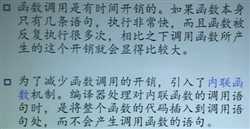 函数调用是有时间开销的。如果函数本身
只有几条语句,执行非常快,而且函数被
反复执行很多次,相比之下调用函数所产
生的这个开销就会显得比较大。
为了减少函数调用的开销,引入了内联函
数机制。编译器处理对内联函数的调用语
句时,是将整个函数的代码插入到调用语
句处,而不会产生调用函数的语句。